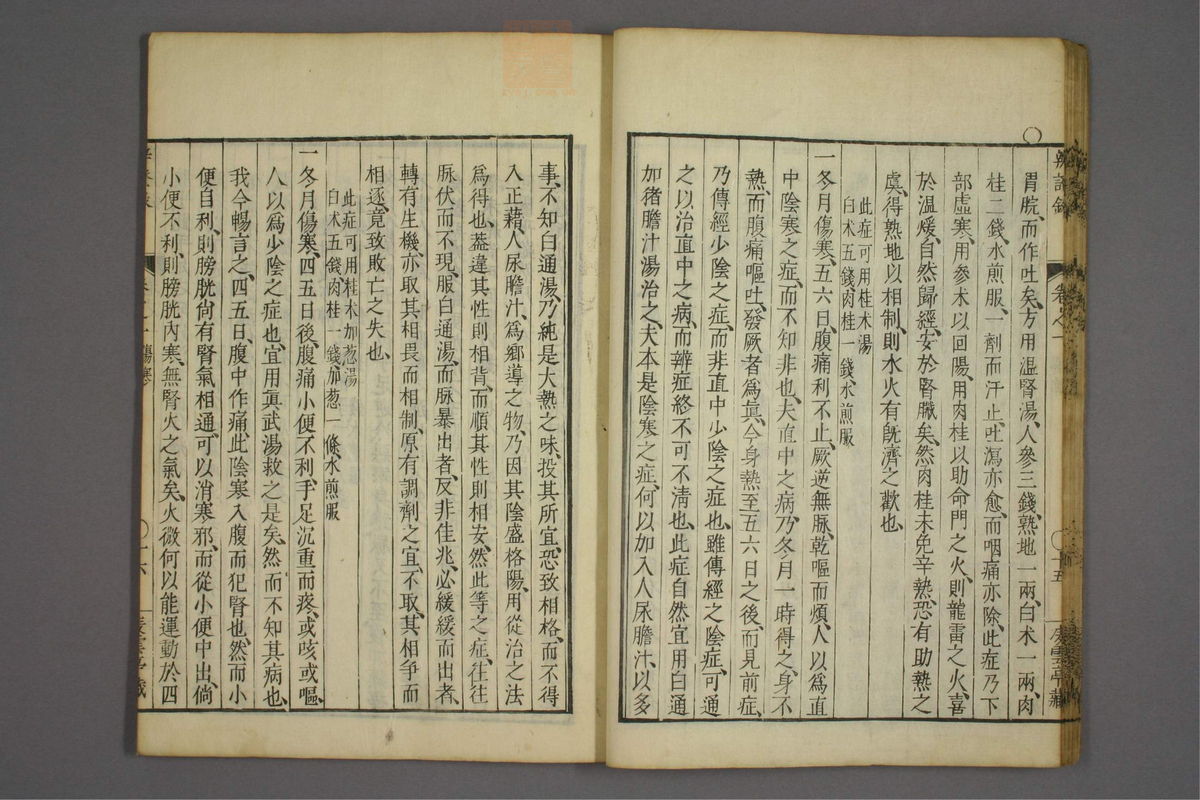 辨證錄 卷之一 十五
胃脘、而作吐矣、方用溫腎湯、人參三錢、熟地一兩、白术一兩、肉
桂二錢、水煎服、一劑而汗止、吐瀉亦愈、而咽痛亦除、此症乃下
部虛寒、用參术以回陽、用肉桂以助命門之火、則龍雷之火、喜
於溫煖、自然歸經、安於腎臟矣、然肉桂未免辛熱、恐有助熱之
虞、得熟地以相制、則水火有旣濟之歡也、
此症可用桂术湯
白术五錢肉桂一錢、水煎服
一冬月傷寒、五六日、腹痛利不止、厥逆無脉、乾嘔而煩、人以爲直
中陰寒之症、而不知非也、夫直中之病、乃冬月一時得之、身不
熱、而腹痛嘔吐、發厥者爲眞、今身熱至五六日之後、而見前症、
乃傳經少陰之症、而非直中少陰之症也、雖傳經之陰症、可通
之以治直中之病、而辨症終不可不淸也、此症自然宜用白通
加猪膽汁湯治之、夫本是陰寒之症、何以加入人尿膽汁、以多
事、不知白通湯、乃純是大熱之味、投其所宜、恐致相格、而不得
入正藉人尿膽汁、爲鄉導之物、乃因其陰盛格陽、用從治之法
爲得也、葢違其性則相背、而順其性則相安、然此等之症、往往
脉伏而不現、服白通湯、而脉暴出者、反非佳兆、必緩緩而出者、
轉有生機、亦取其相畏而相制、原有調劑之宜、不取其相爭而
相逐、竟致敗亡之失也、
此症可用桂术加葱湯
白术五錢肉桂一錢加葱一條、水煎服
一冬月傷寒、四五日後、腹痛小便不利、手足沉重而疼、或咳或嘔、
人以爲少陰之症也、宜用眞武湯救之是矣、然而不知其病也、
我今暢言之、四五日、腹中作痛、此陰寒入腹而犯腎也、然而小
便自利、則膀胱尚有腎氣相通、可以消寒邪、而從小便中出、倘
小便不利、則膀胱內寒、無腎火之氣矣、火微何以能運動於四